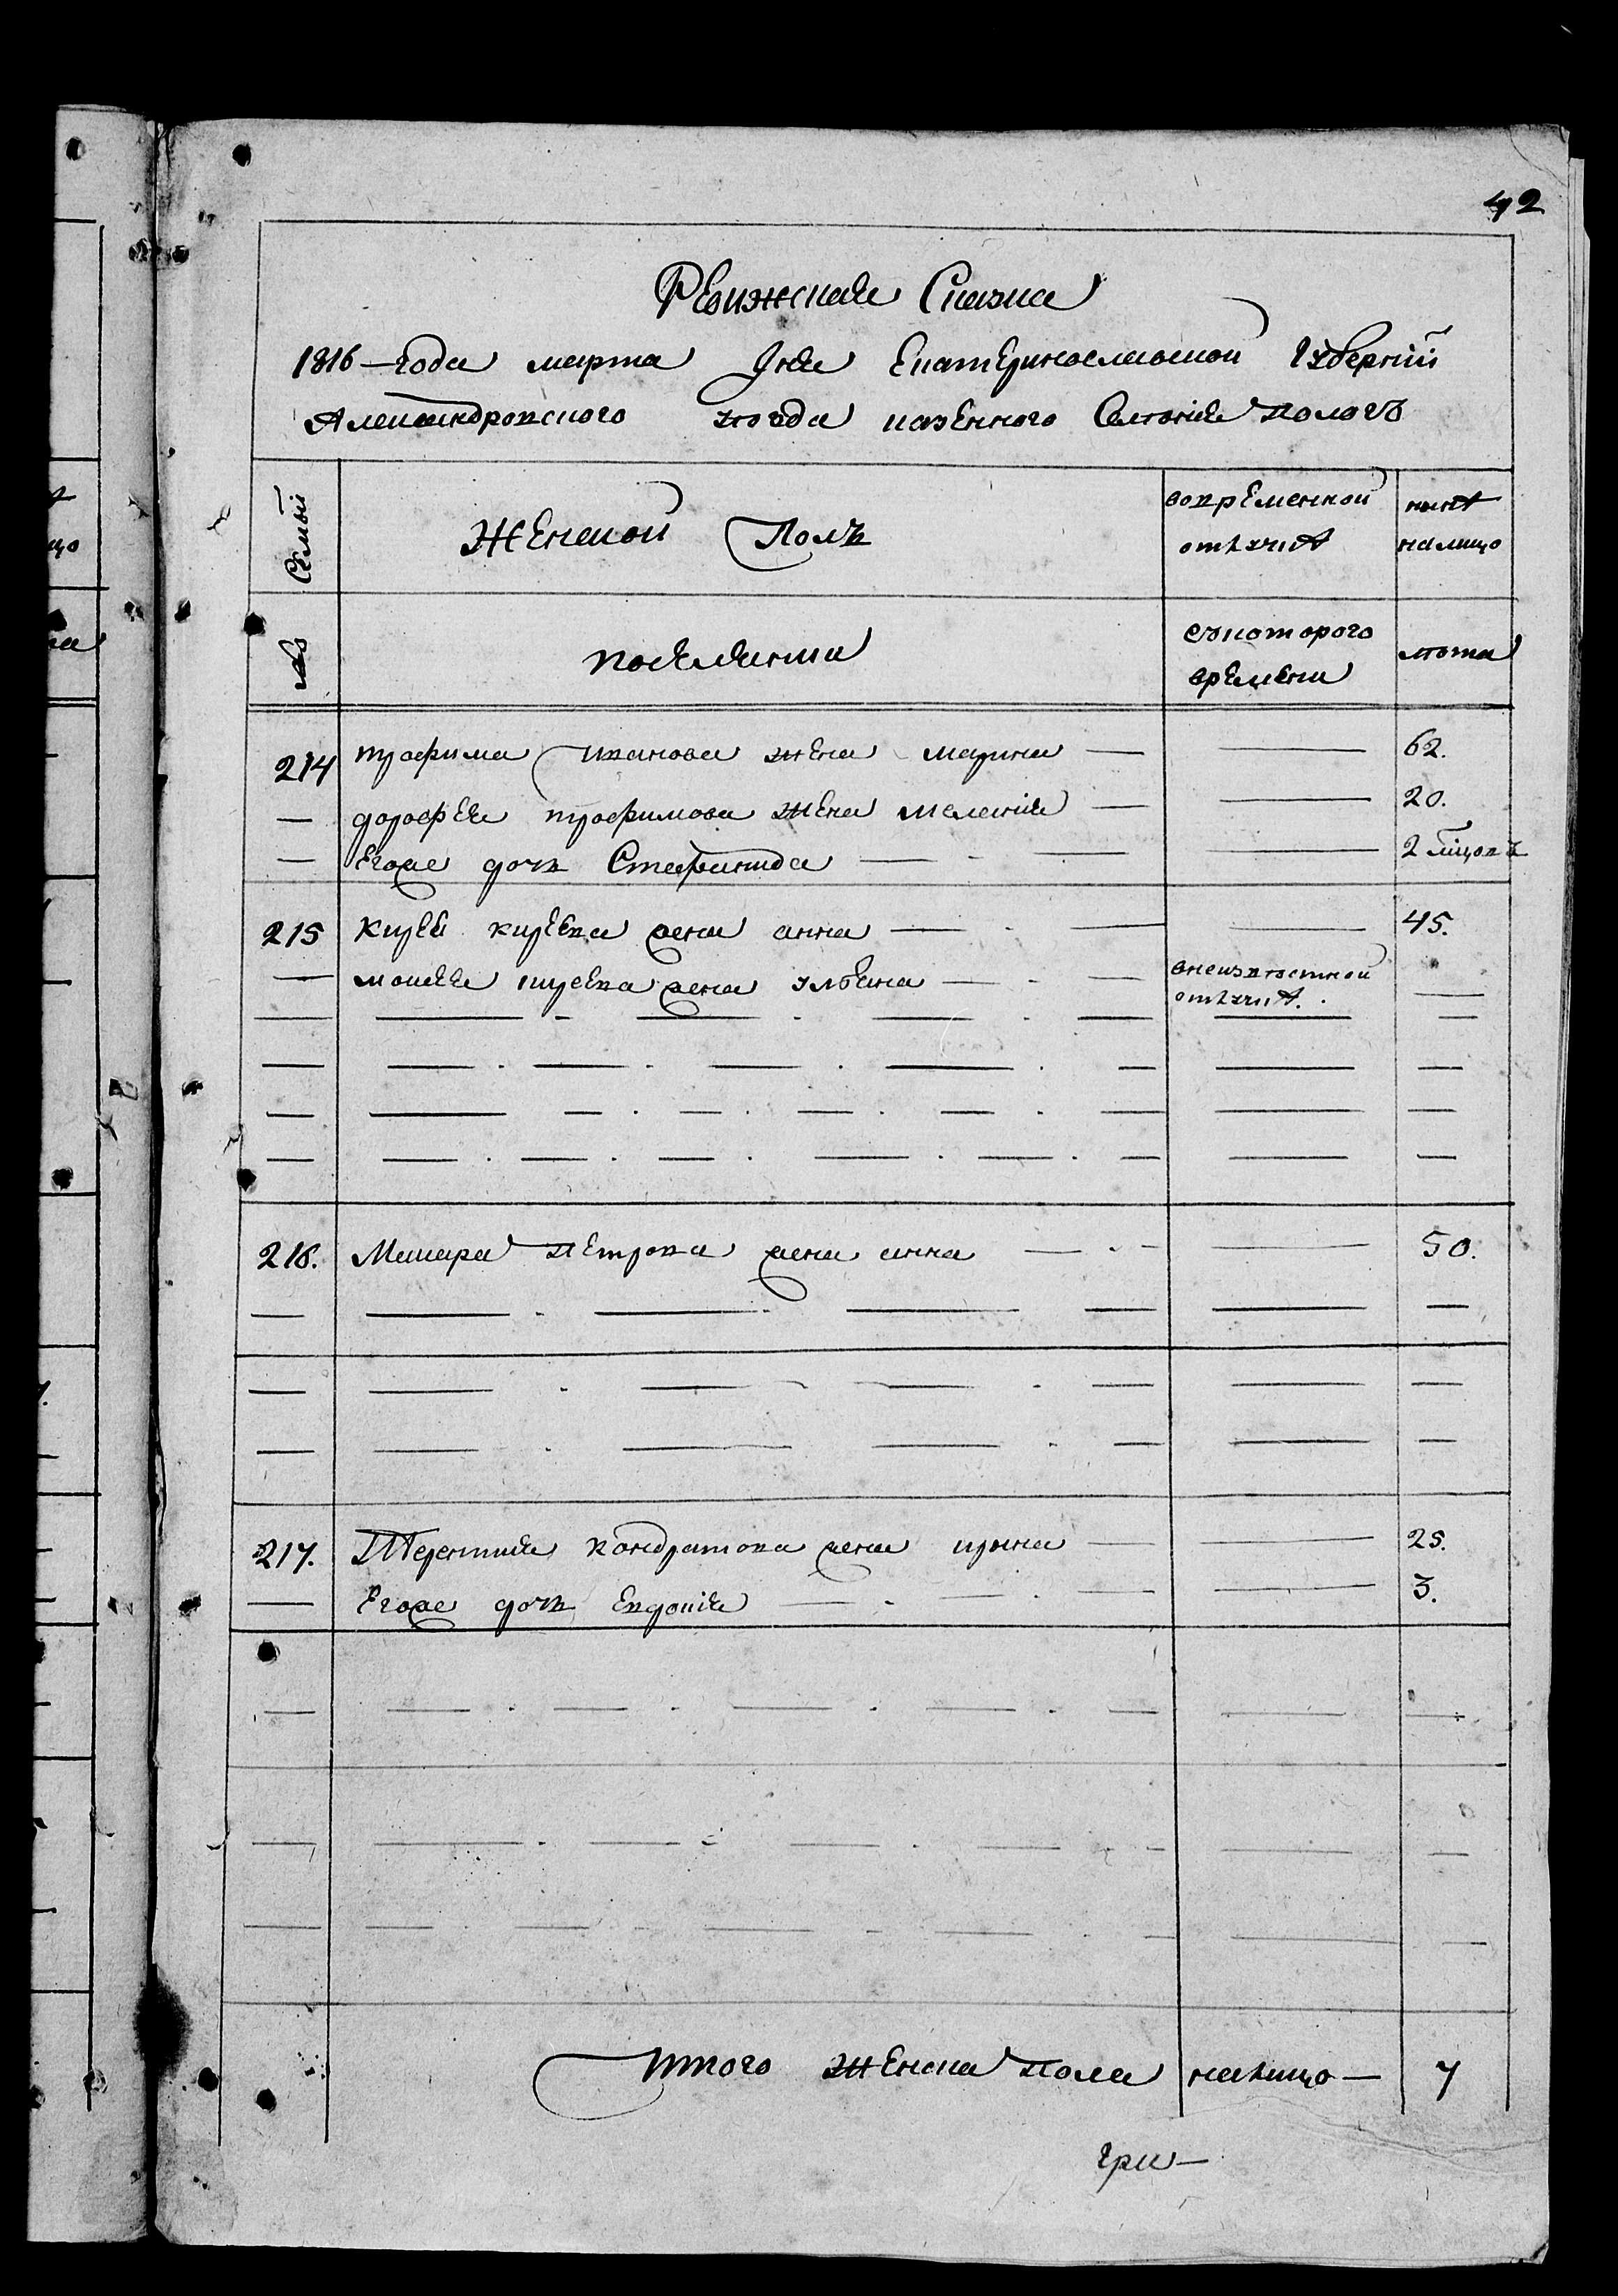 42
Ревижская Сказка
1816-года марта дня Екатеринославской Губернии
Александровского поѣда казенного Селения Пологъ
Семьи
Женской Полъ
вовременной
отлучкѣ
нынѣ
налицо
№
поселянки
скоторого
времени
лѣта
214 трофима иванова жена марина — — 62.
— дорофея трофимова жена мелания — — 20.
— Егоже дочь Стефанида — — 2 мѣсяцовъ
215 кирея киреева жена анна — — 45.
— моисея киреева жена ульяна — внеизвестной
отлучкѣ. —
216. Макара петрова жена анна — — 50.
217. Терентия кондратова жена ирина — — 25.
— Егоже дочь Евдокия — — 3.
Итого женска пола налицо — 7
гри—